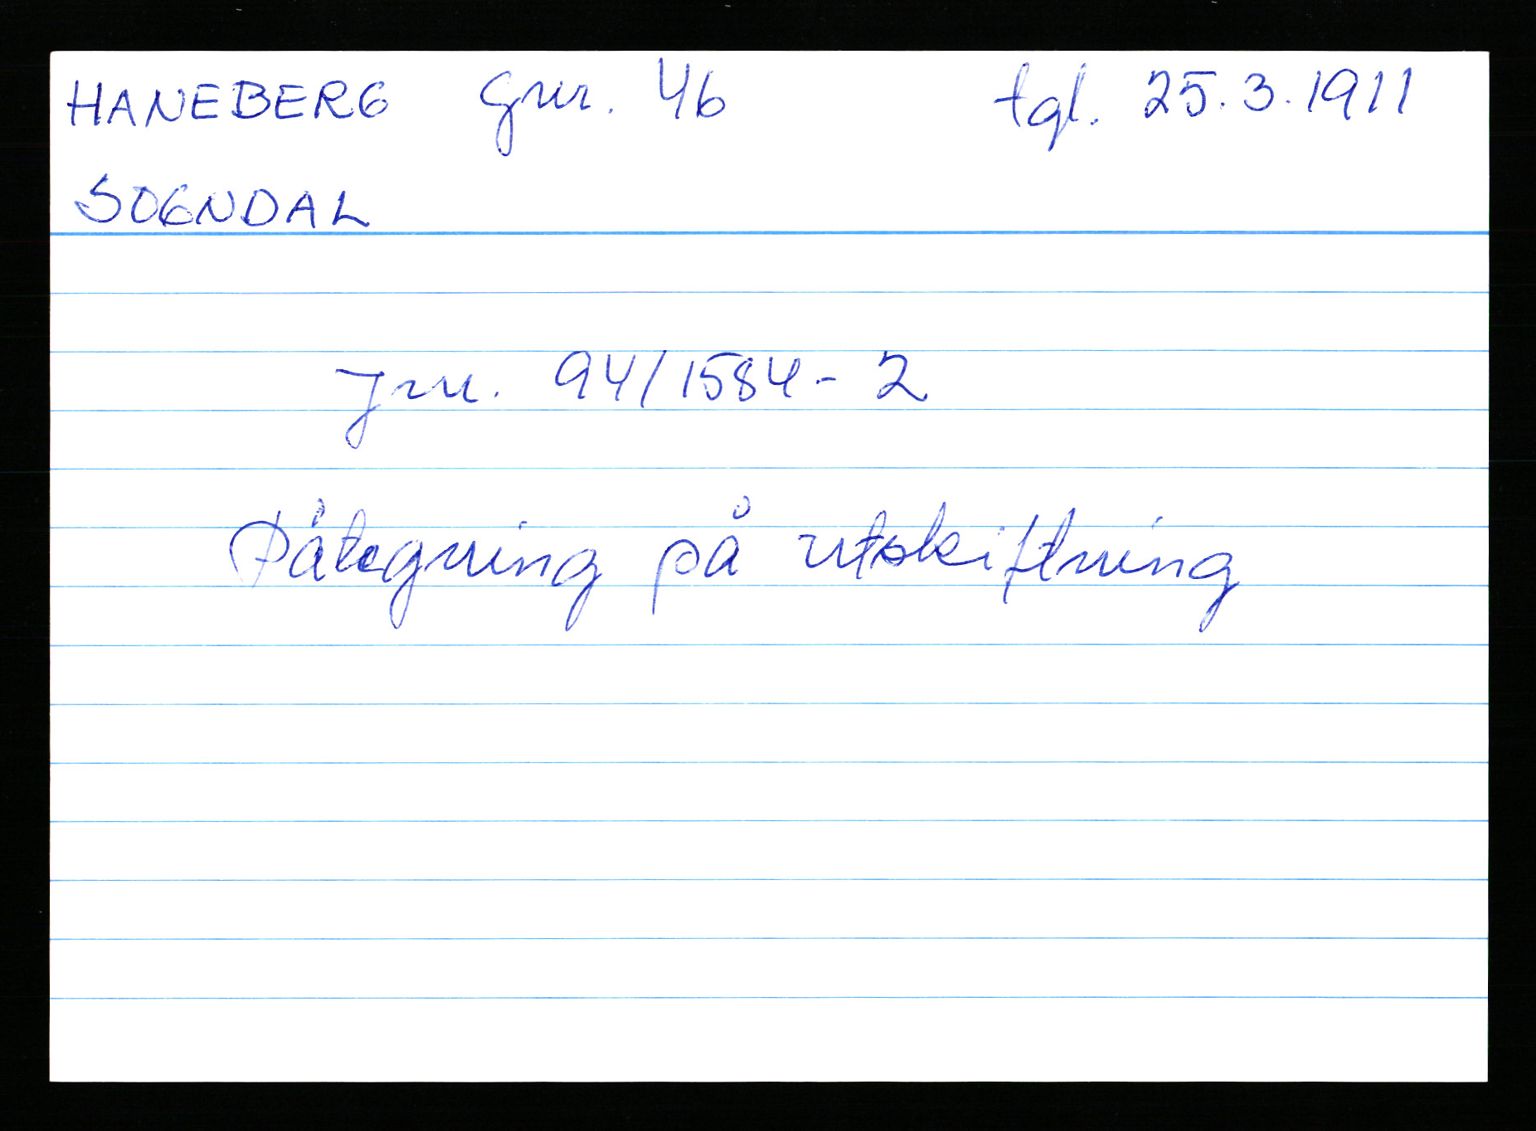 HANEBERG gnr. 46 tgl. 25.3.1911
SOGNDAL
jnr. 94/1584-2
Påtegning på utskiftning